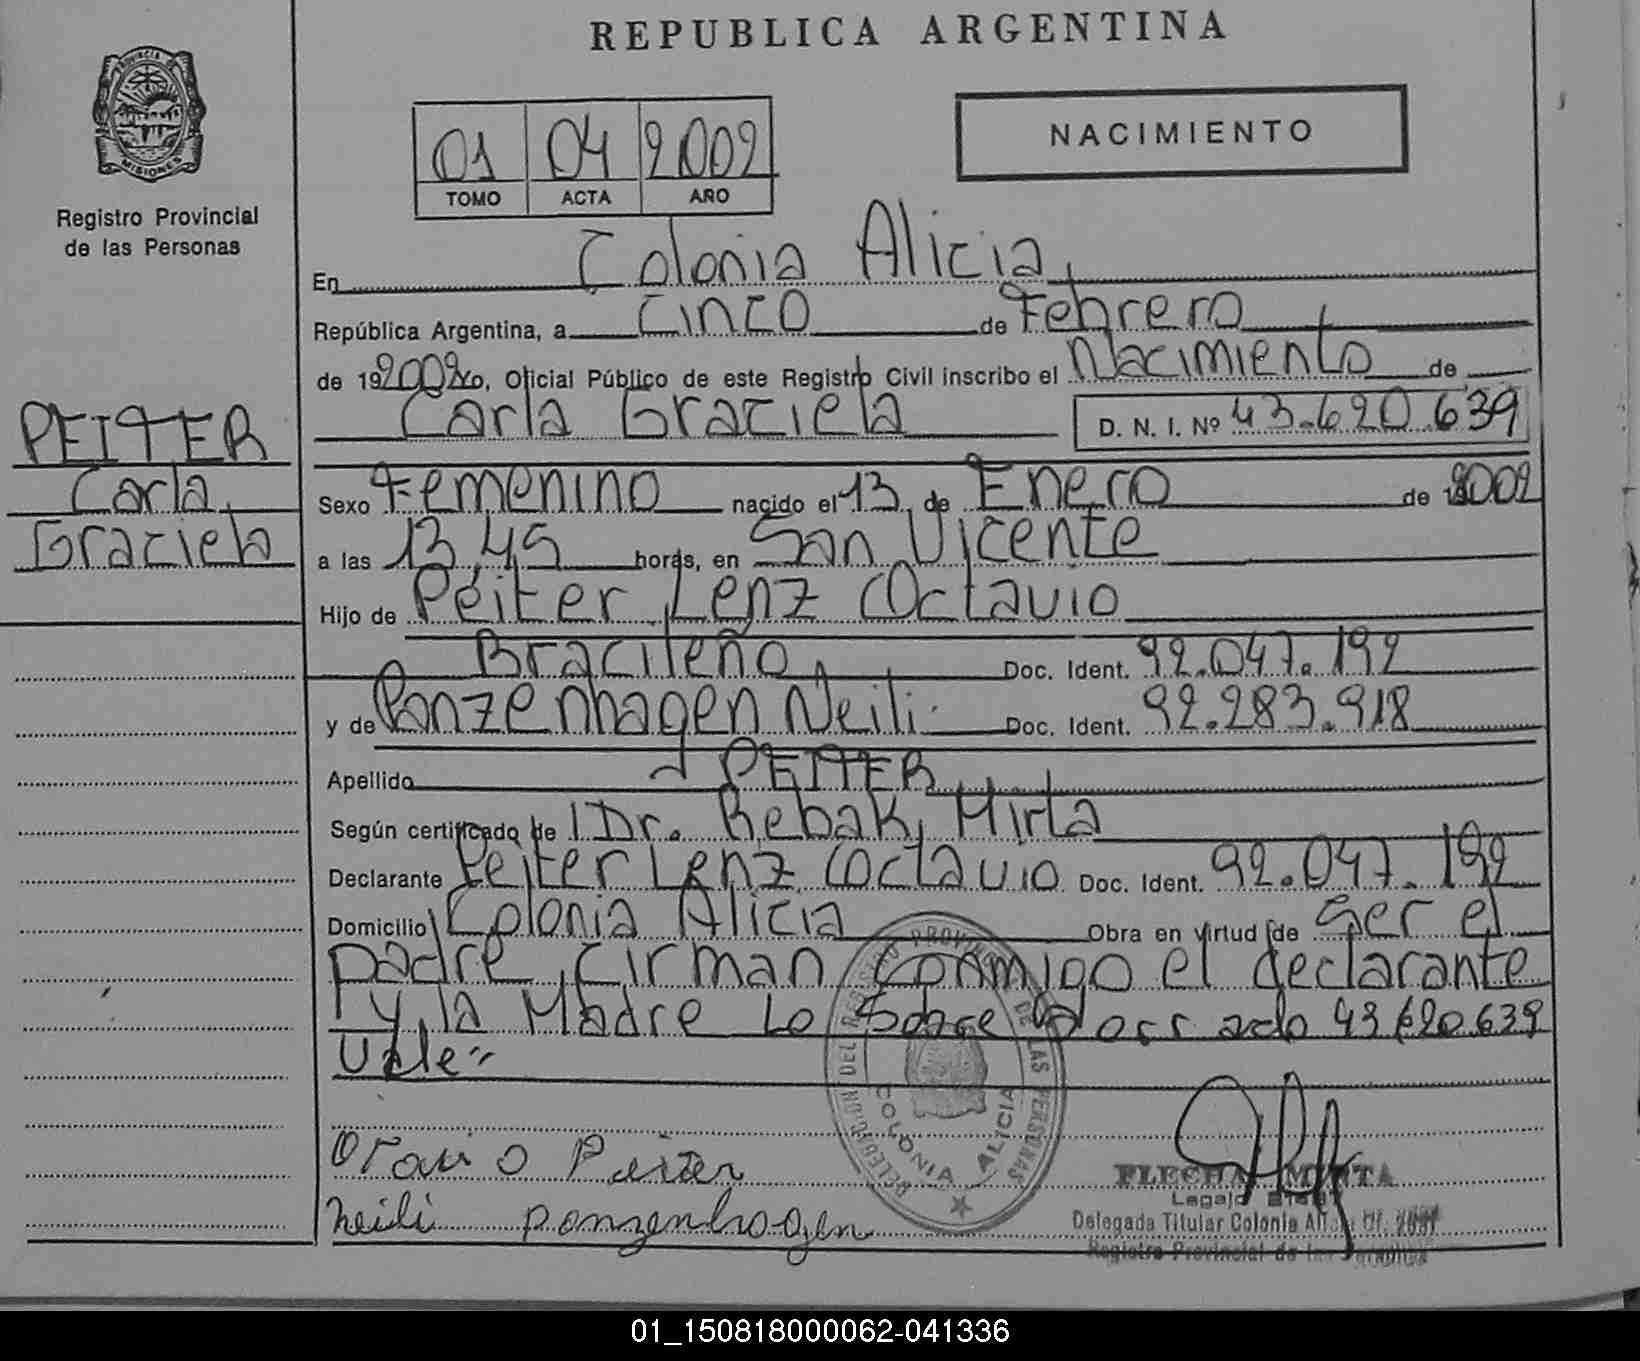 REPUBLICA ARGENTINA
PROVINCIA DE
MISIONES
Registro Provincial
de las Personas
01 04 2002
TOMO ACTA AÑO
NACIMIENTO
En Colonia Alicia,
República Argentina, a Cinco de Febrero
de 192002 Yo, Oficial Público de este Registro Civil inscribo el Nacimiento de
Carla Graciela D. N. I. Nº 43.620.639
PEITER
Carla
Graciela
Sexo Femenino nacido el 13 de Enero de 2002
a las 13,45 horas, en San Vicente
Hijo de Peiter Lenz Octavio
Bracileño Doc. Ident. 92.047.192
y de Panzenhagen Neili Doc. Ident. 92.283.918
Apellido PEITER
Según certificado de Dr. Rebak, Mirta
Declarante Peiter Lenz Octavio Doc. Ident. 92.047.192
Domicilio Colonia Alicia Obra en virtud de Ser el
padre, Firman Conmigo el declarante
y la Madre Lo Sobre 43.620.639
Vale
DELEGACION DEL REGISTRO PROVINCIAL DE LAS PERSONAS
COLONIA ALICIA
Otavio Peiter
Neili Panzenhagen
FLECHA MIRTA
Legajo
Delegada Titular Colonia Alicia Of.
Registro Provincial de las Personas
01_150818000062-041336